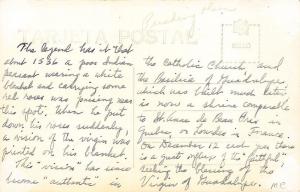 Reading place
TARJETA POSTAL
SELLO
The legend has it that
about 1536 a poor Indian
peasant wearing a white
blanket and carrying some
red roses was passing near
this spot. When he put
down his roses suddenly,
a vision of the virgin was
printed on his blanket.
This "visita" has since
become "authentic" in
the Catholic Church and
the Basilica of Guadalupe,
which was built much later
is now a shrine comparable
to St. Anne de Beau Pres in
Quebec, or Lourdes in France.
On December 12 each year there
is a great outflow of the "faithful"
seeking the blessing of the
Virgin of Guadalupe.
M.C.